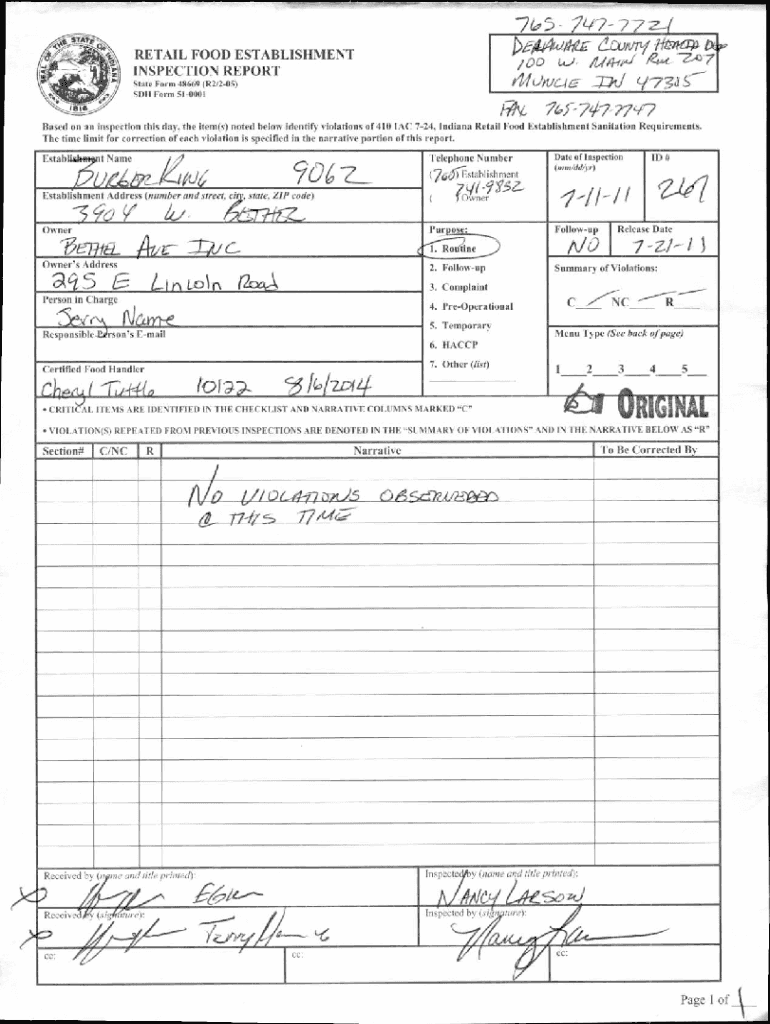 765-747-7721
DELAWARE COUNTY HEALTH DEP
100 W. MAIN RM 207
MUNCIE IN 47305
FAX 765-747-7747
SEAL OF THE STATE OF INDIANA
1816
RETAIL FOOD ESTABLISHMENT
INSPECTION REPORT
State Form 48669 (R2/2-05)
SDH Form 51-0001
Based on an inspection this day, the item(s) noted below identify violations of 410 IAC 7-24, Indiana Retail Food Establishment Sanitation Requirements.
The time limit for correction of each violation is specified in the narrative portion of this report.
Establishment Name
BURGER KING 9062
Telephone Number
(765) Establishment
741-9832
( ) Owner
Date of Inspection
(mm/dd/yr)
7-11-11
ID #
267
Establishment Address (number and street, city, state, ZIP code)
3904 W. BETHEL
Owner
BETHEL AVE INC
Purpose:
1. Routine
2. Follow-up
3. Complaint
4. Pre-Operational
5. Temporary
6. HACCP
7. Other (list)
Follow-up
NO
Release Date
7-21-11
Owner's Address
295 E Lincoln Road
Summary of Violations:
C NC R
Person in Charge
Jerry Name
Responsible Person's E-mail
Menu Type (See back of page)
1 2 3 4 5
Certified Food Handler
Cheryl Tuttle 10122 8/6/2014
ORIGINAL
• CRITICAL ITEMS ARE IDENTIFIED IN THE CHECKLIST AND NARRATIVE COLUMNS MARKED "C"
• VIOLATION(S) REPEATED FROM PREVIOUS INSPECTIONS ARE DENOTED IN THE "SUMMARY OF VIOLATIONS" AND IN THE NARRATIVE BELOW AS "R"
Section# C/NC R Narrative To Be Corrected By
NO VIOLATIONS OBSERVED
@ THIS TIME
Received by (name and title printed):
Inspected by (name and title printed):
X
NANCY LARSON
Received by (signature):
Inspected by (signature):
X
Nancy
cc:
cc:
cc:
Page 1 of 1